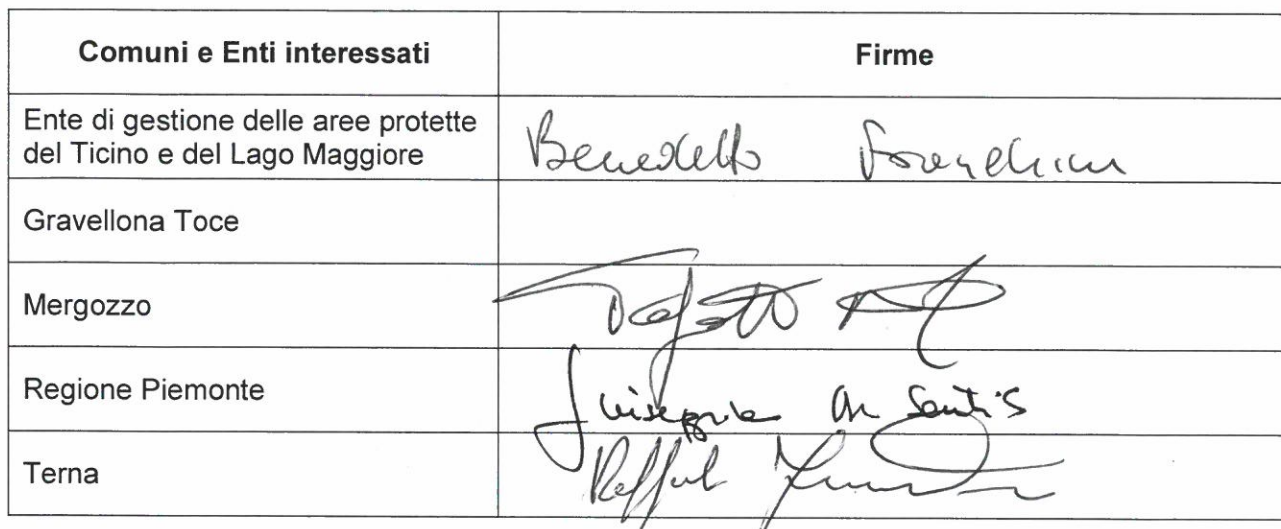 Comuni e Enti interessati Firme
Ente di gestione delle aree protette
del Ticino e del Lago Maggiore
Benedetto Franchini
Gravellona Toce
Mergozzo
Regione Piemonte
Giuseppina De Santis
Terna